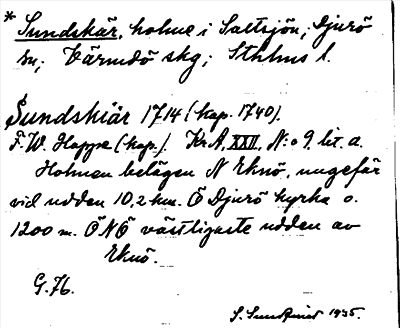 * Sundskär, holme i Saltsjön; Djurö
sn; Värmdö skg; Sthlms l.
Sundskiär 1714 (kap. 1740).
F.W. Hoppe (kap.). Kr.A. XXII, N:o 9 lit. a.
Holmen belägen N Eknö, ungefär
vid udden 10,2 km. Ö Djurö kyrka o.
1200 m. ÖNÖ västligaste udden av
Eknö.
G. 76.
S. 1935.